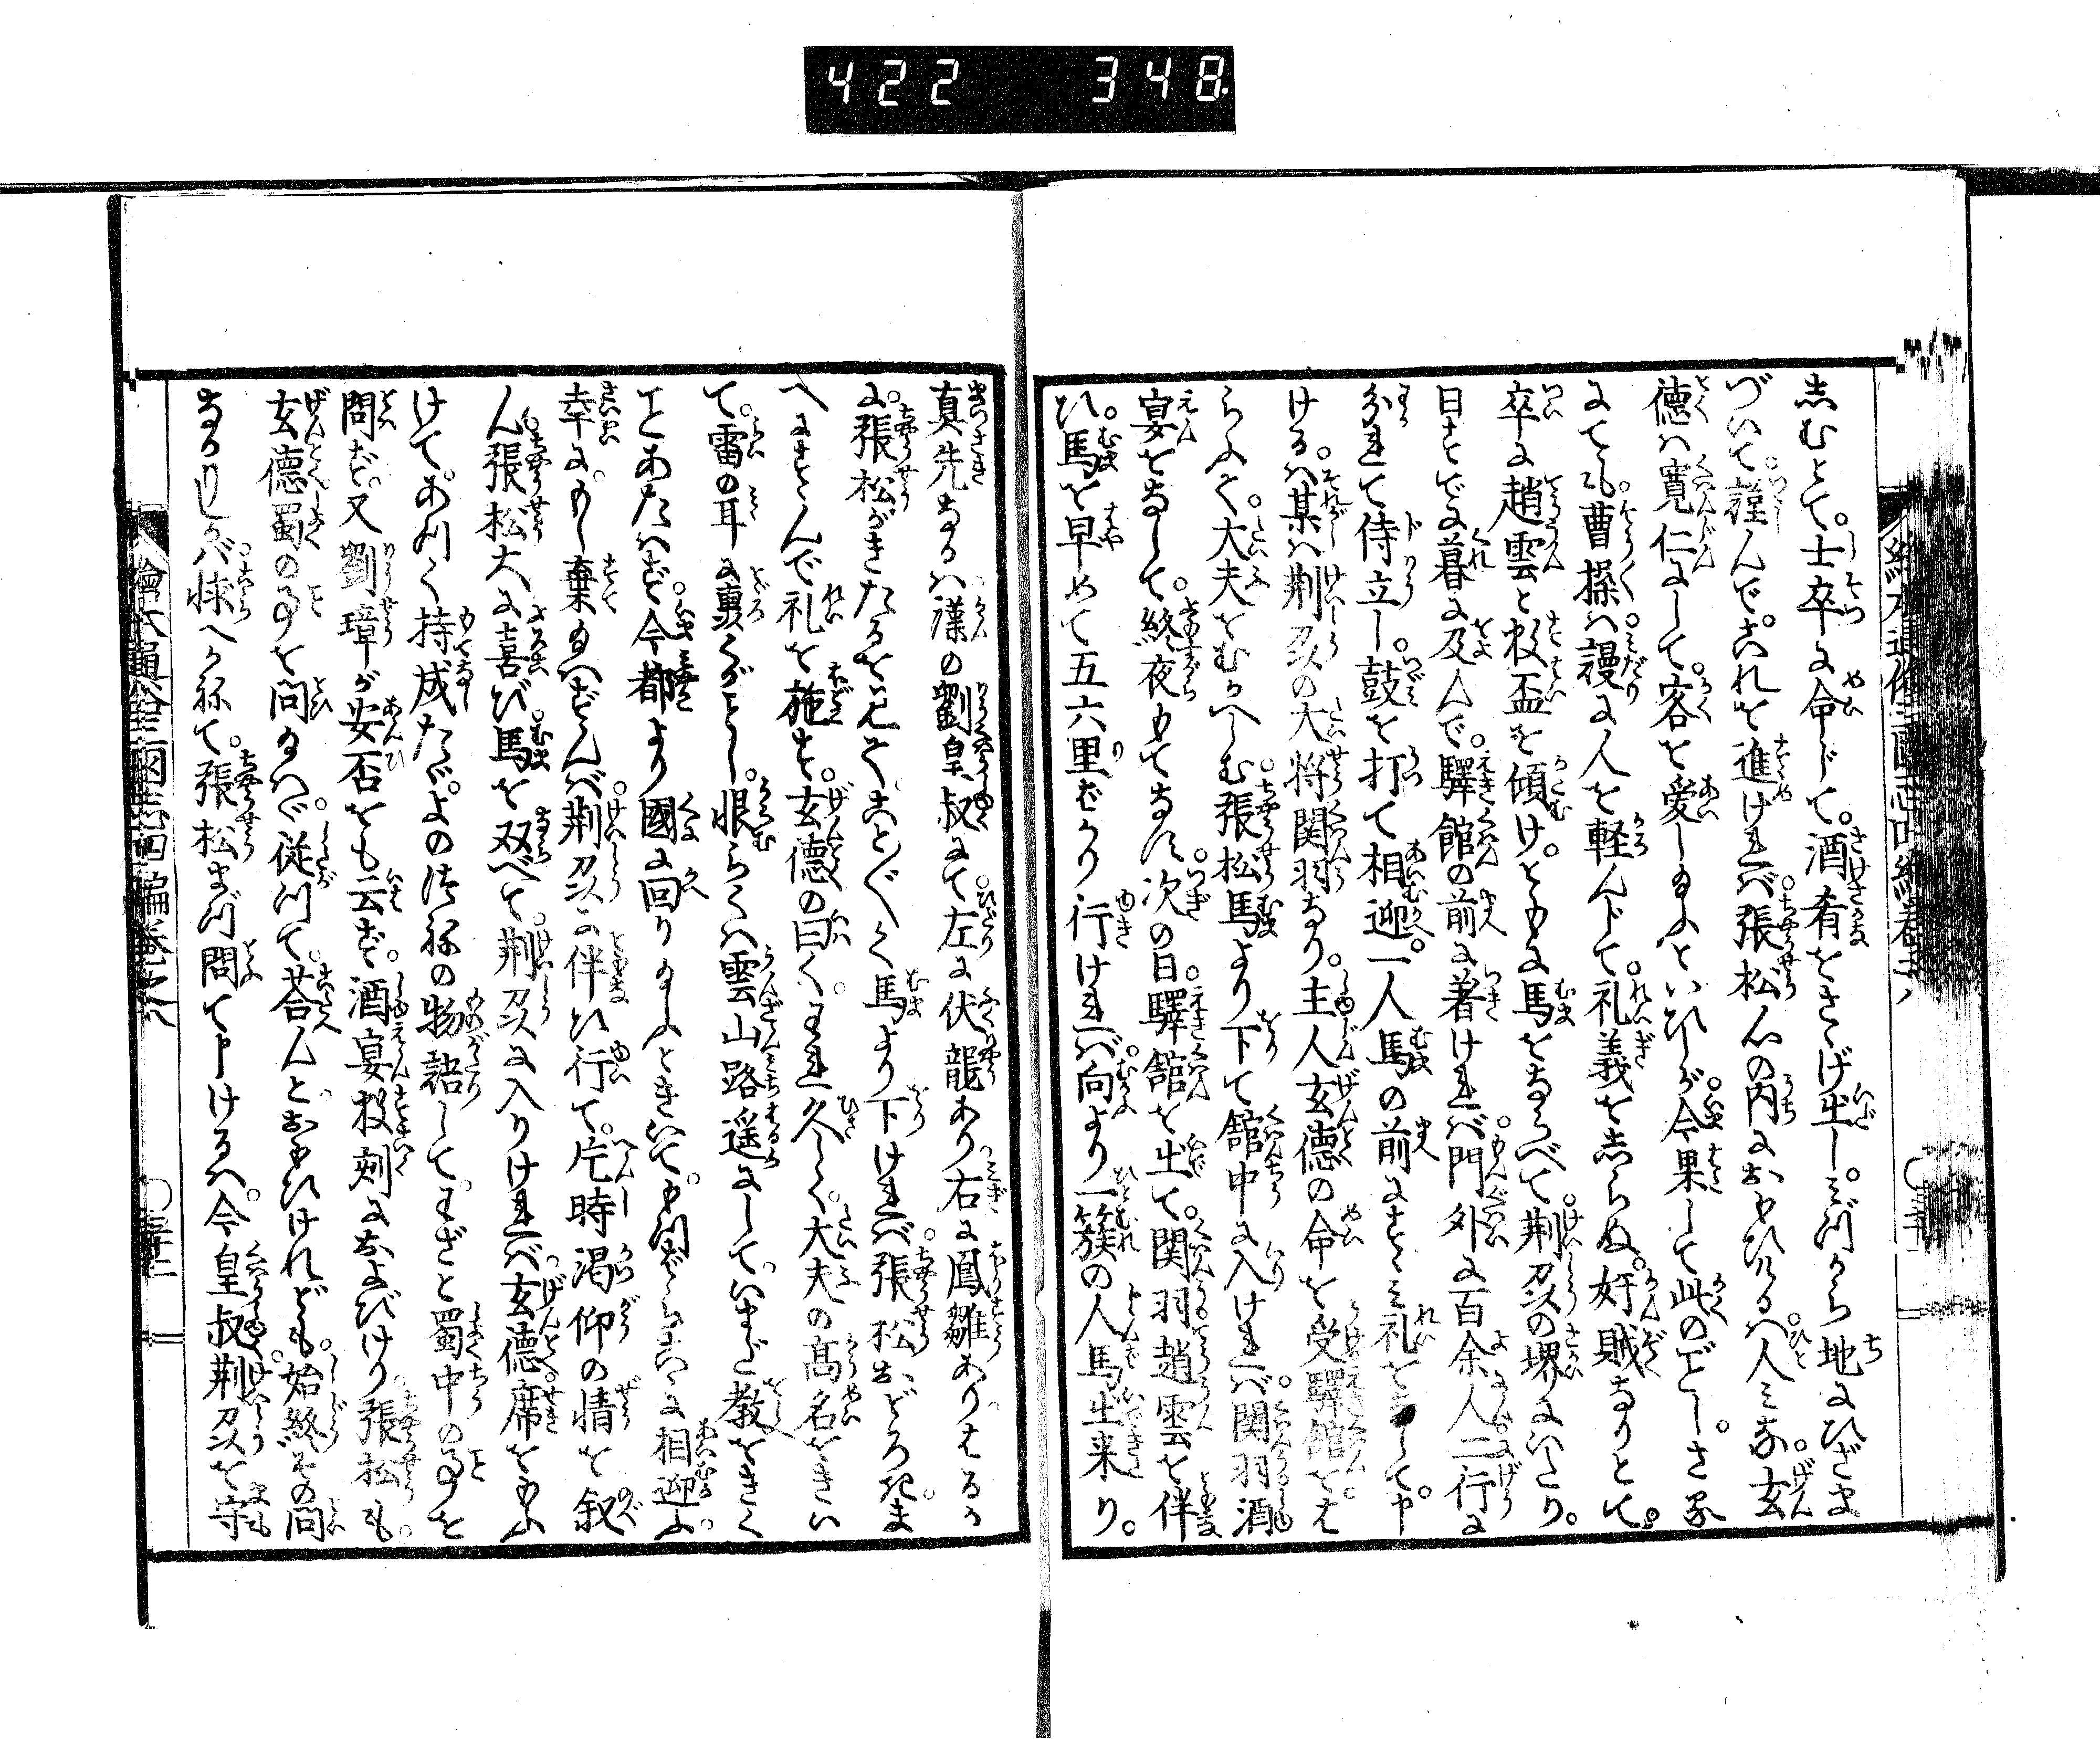 422 348
志むとて。士卒に命じて。酒肴をさゝげ出し。みづから地にひざま
づいて謹んで。これを進けれバ。張松心の内におもひけるハ。人みな玄
徳ハ寛仁にして。客を愛し給ふといひしが。今果して此のごとし。さ
にても。曹操ハ謾に人を軽んじて。礼義を志らぬ。奸賊なりとて。
卒に趙雲と数盃を傾け。ともに馬をならべて。荊州の堺にいたり。
日すでに暮に及んで。驛館の前に着けれバ。門外に百余人二行に
分れて侍立し。鼓を打て相迎。一人馬の前にすゝみ礼をなして。申
けるハ。某ハ荊州の大将関羽なり。主人玄徳の命を受。驛館をは
らふて。大夫をむかへしむ。張松馬より下て舘中に入けれバ。関羽酒
宴をなして。終夜もてなす。次の日。驛舘を出て。関羽趙雲を伴
ひ。馬を早めて五六里ばかり行けれバ。向より一簇の人馬出来り。
真先なるハ漢の劉皇叔にて。左に伏龍あり。右に鳳雛あり。はるか
に。張松がきたるを見て。ことごとく馬より下けれバ。張松おどろきま
へにすゝんで礼を施す。玄徳の曰く。われ久しく。大夫の高名をきい
て。雷の耳に轟くがごとし。恨らくハ雲山路遥にして。いまだ教をきく
ことあたハず。今都より國に回り給ふときいて。わざわざこゝに相迎ふ。
幸に。もし棄給ハずんバ。荊州に伴ひ行て。片時渇仰の情を叙
ん。張松大に喜び。馬を双べて。荊州に入りけれバ。玄徳。席をもふ
けて。あつく持成。たゞよのつねの物語して。わざと蜀中の事を
問ず。又劉璋が安否をも云ず。酒宴数刻におよびけり。張松も。
玄徳蜀の事を問給ハゞ。従つて。荅んとおもひけれども。始終その問
なかりしかバ。怺へかねて。張松まづ問て申けるハ。今皇叔。荊州を守
繪本通俗三國志四編巻之八